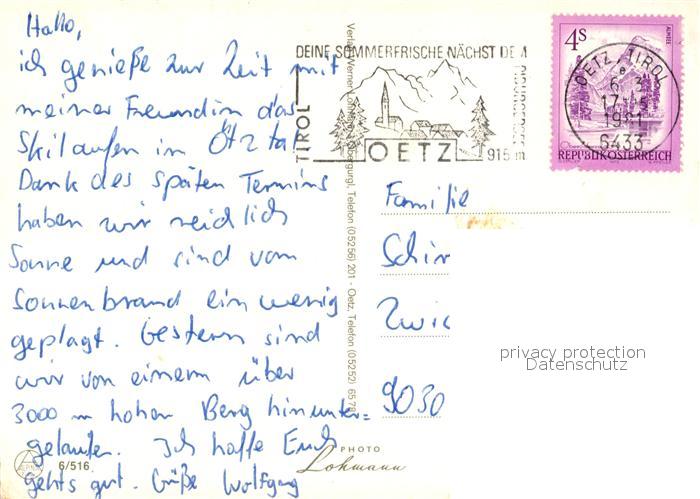 Hallo,
ich genieße zur Zeit mit
meiner Freundin das
Skilaufen in Ötztal
Dank des späten Termins
haben wir reichlich
Sonne und sind vom
Sonnenbrand ein wenig
geplagt. Gestern sind
wir von einem über
3000 m hohen Berg hinunter-
gelaufen. Ich hoffe Euch
gehts gut. Grüße Wolfgang
6/516
PHOTO
Lohmann
Obergurgl, Telefon (05256) 201 - Oetz, Telefon (05252) 65
DEINE SOMMERFRISCHE NÄCHST DE
TIROL
OETZ
915 m
4S
ALMSEE
REPUBLIK ÖSTERREICH
OETZ, TIROL
1981
6433
Familie
Schir
Zwic
9030
privacy protection
Datenschutz